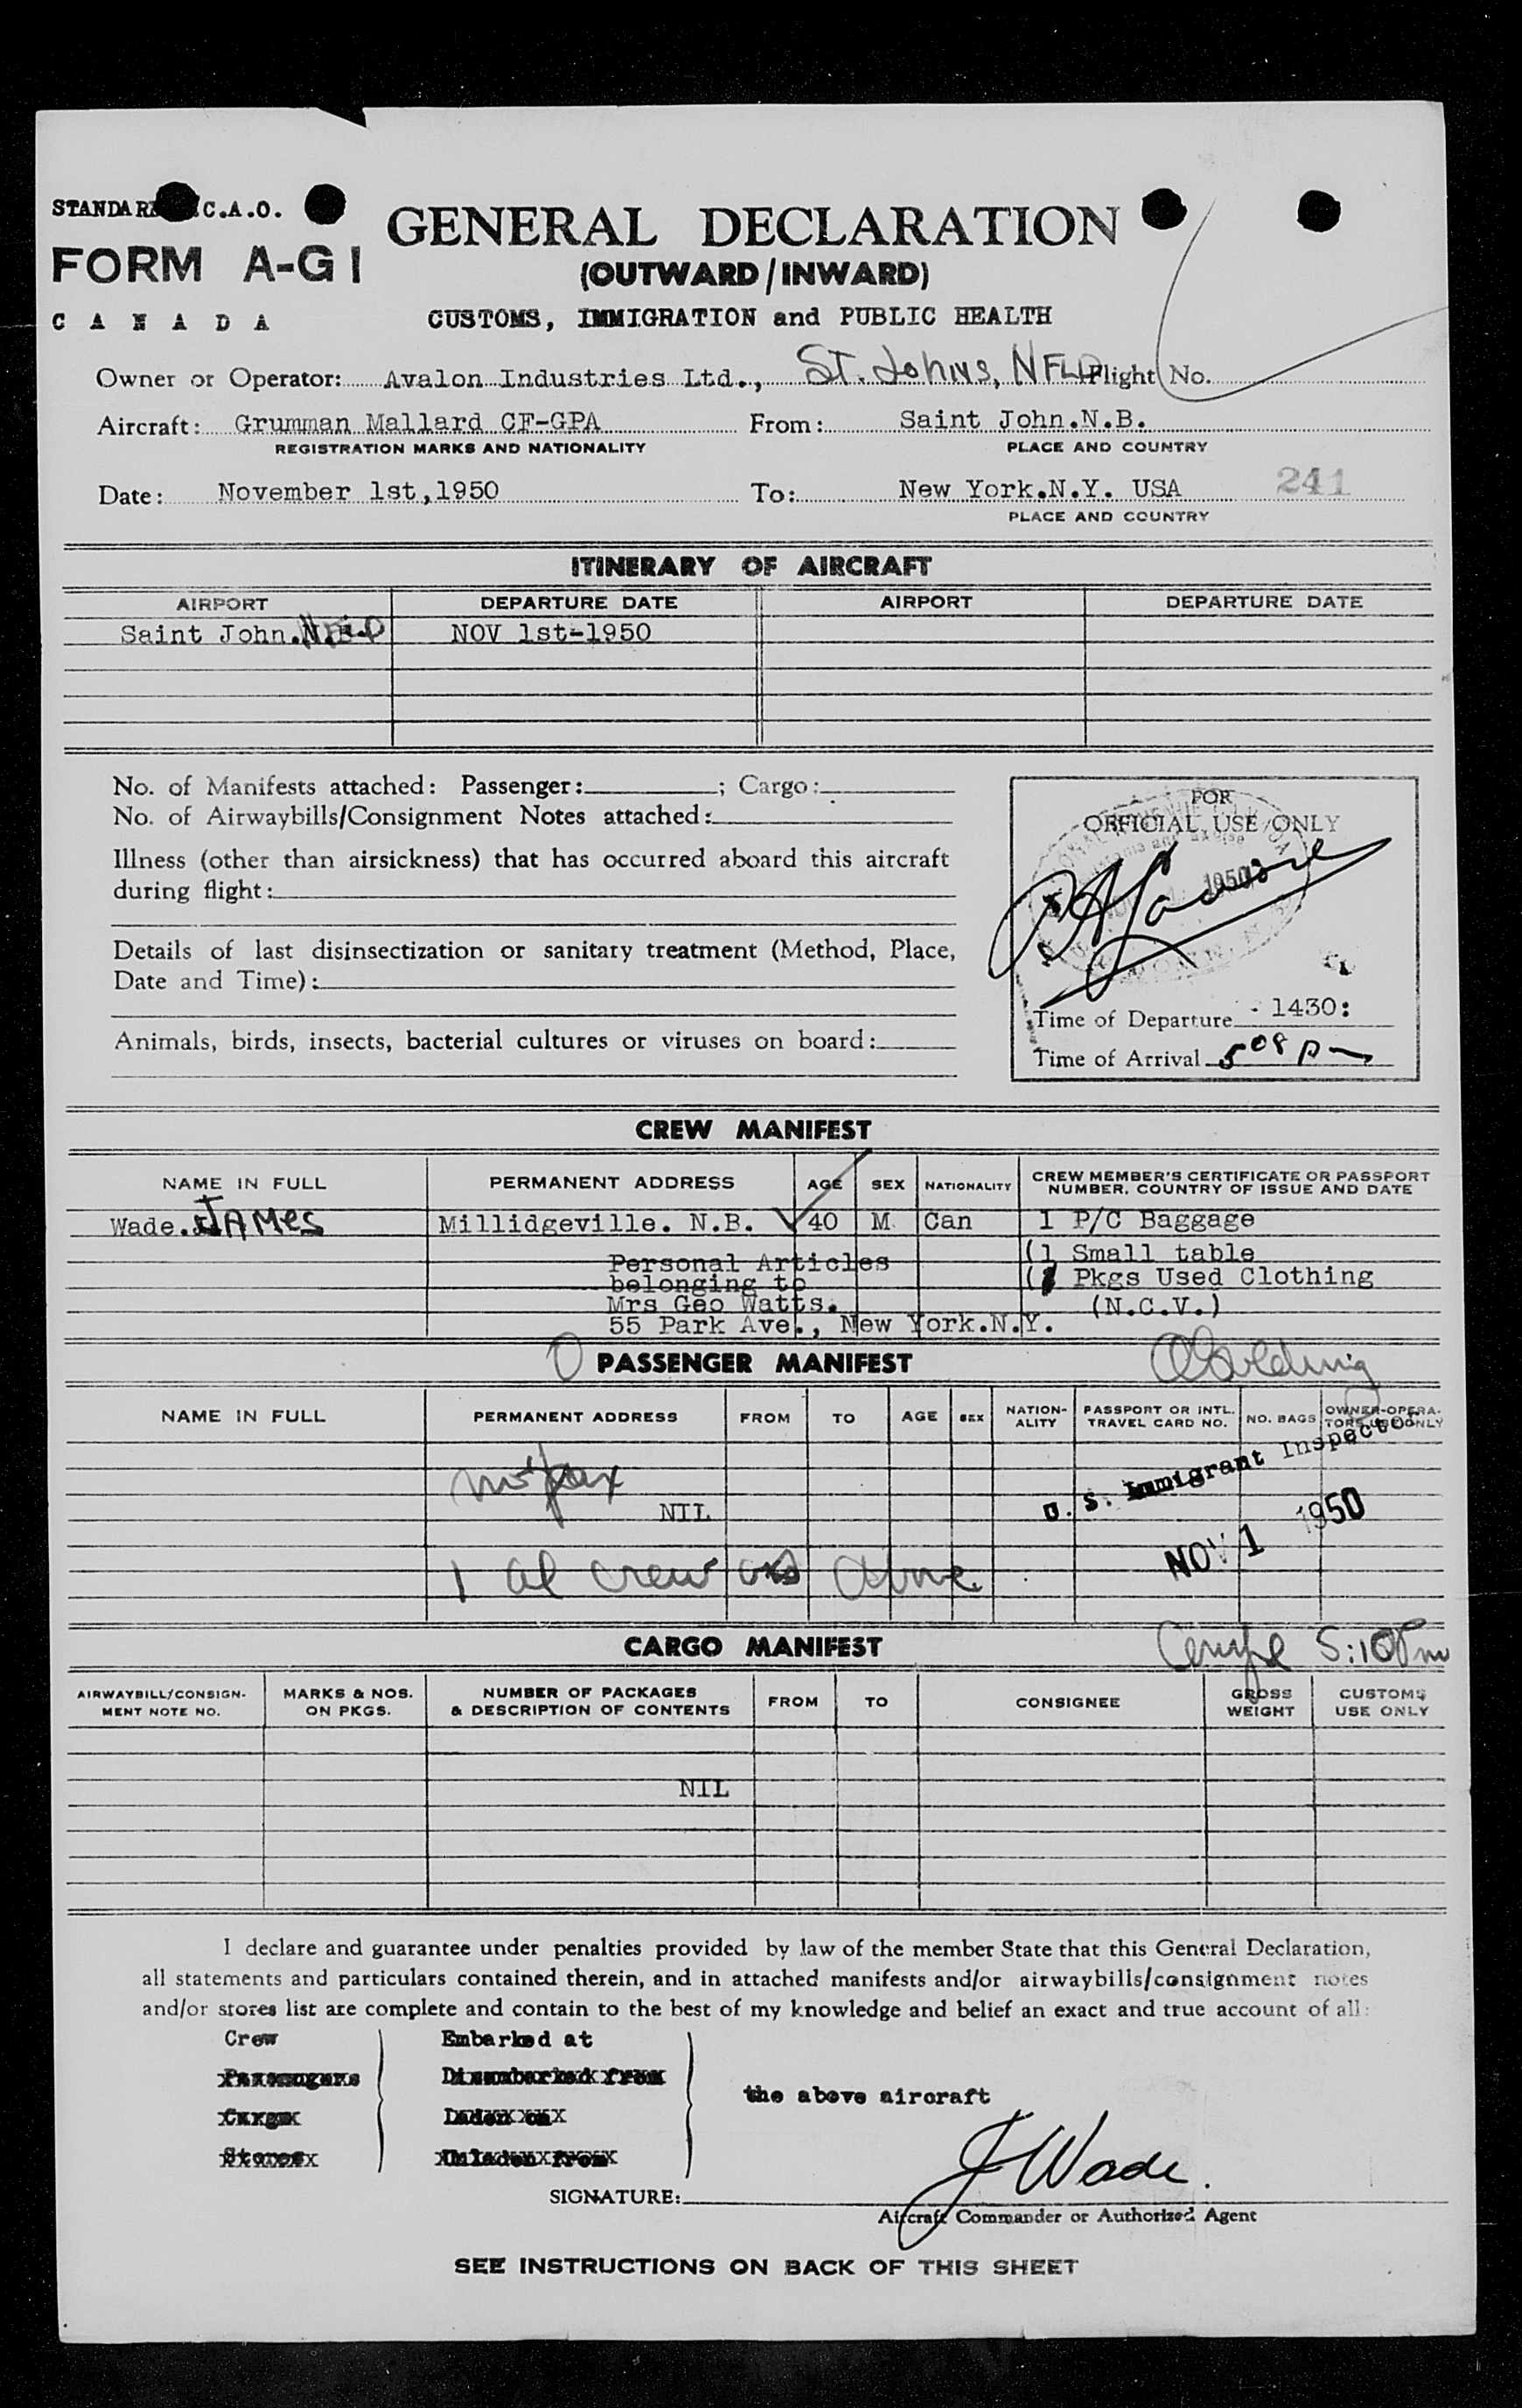 STANDARD I.C.A.O.
GENERAL DECLARATION
FORM A-G1
(OUTWARD/INWARD)
CANADA
CUSTOMS, IMMIGRATION and PUBLIC HEALTH
Owner or Operator: Avalon Industries Ltd., ST. Johns, NFLD Flight No.
Aircraft: Grumman Mallard CF-GPA From: Saint John.N.B.
REGISTRATION MARKS AND NATIONALITY PLACE AND COUNTRY
Date: November 1st,1950 To: New York.N.Y. USA 241
PLACE AND COUNTRY
ITINERARY OF AIRCRAFT
AIRPORT DEPARTURE DATE AIRPORT DEPARTURE DATE
Saint John. NOV 1st-1950
No. of Manifests attached: Passenger: ; Cargo:
No. of Airwaybills/Consignment Notes attached:
Illness (other than airsickness) that has occurred aboard this aircraft
during flight:
Details of last disinsectization or sanitary treatment (Method, Place,
Date and Time):
Animals, birds, insects, bacterial cultures or viruses on board:
FOR
OFFICIAL USE ONLY
1950
Time of Departure - 1430:
Time of Arrival 5 08 pm
CREW MANIFEST
NAME IN FULL PERMANENT ADDRESS AGE SEX NATIONALITY CREW MEMBER'S CERTIFICATE OR PASSPORT
NUMBER, COUNTRY OF ISSUE AND DATE
Wade. JAMES Millidgeville. N.B. 40 M Can 1 P/C Baggage
(1 Small table
Personal Articles
( Pkgs Used Clothing
belonging to
Mrs Geo Watts. (N.C.V.)
55 Park Ave., New York.N.Y.
PASSENGER MANIFEST
NAME IN FULL PERMANENT ADDRESS FROM TO AGE SEX NATION-ALITY PASSPORT OR INTL. TRAVEL CARD NO. NO. BAGS OWNER-OPERA-TORS USE ONLY
no pax
NIL
U. S. Immigrant Inspector
NOV 1 1950
1 al crew as above
CARGO MANIFEST
5:10 Pm
AIRWAYBILL/CONSIGN-MENT NOTE NO. MARKS & NOS. ON PKGS. NUMBER OF PACKAGES & DESCRIPTION OF CONTENTS FROM TO CONSIGNEE GROSS WEIGHT CUSTOMS USE ONLY
NIL
I declare and guarantee under penalties provided by law of the member State that this General Declaration,
all statements and particulars contained therein, and in attached manifests and/or airwaybills/consignment notes
and/or stores list are complete and contain to the best of my knowledge and belief an exact and true account of all:
Crew Embarked at
Passengers Disembarked from
the above aircraft
Cargo Laden on
Stores Unladen from
J Wade.
SIGNATURE:
Aircraft Commander or Authorized Agent
SEE INSTRUCTIONS ON BACK OF THIS SHEET